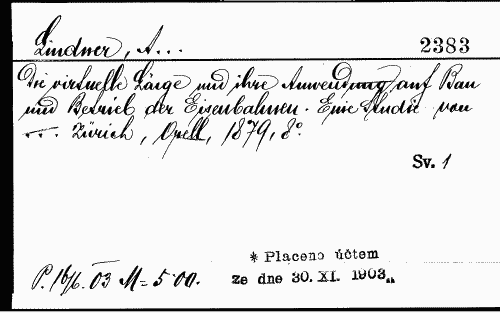 Lindner, A...
2383
Die virtuelle Länge und ihre Anwendung auf Bau
und Betrieb der Eisenbahnen. Eine Studie von
---. Zürich, Orell, 1879, 8°
Sv. 1
* Placeno účtem
P. 16/6. 03 M= 5·00.
ze dne 30. XI. 1903„